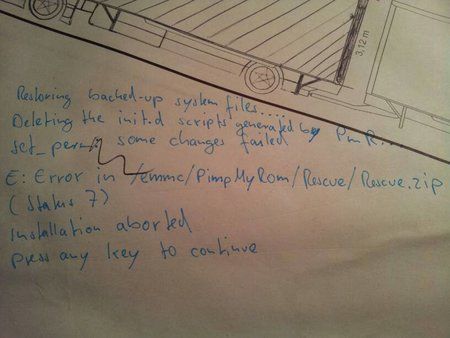 3,12 m
Restoring backed-up system files....
Deleting the init.d scripts generated by PmR...
set_perm: some changes failed
E: Error in /emmc/PimpMyRom/Rescue/Rescue.zip
(Status 7)
Installation aborted
press any key to continue